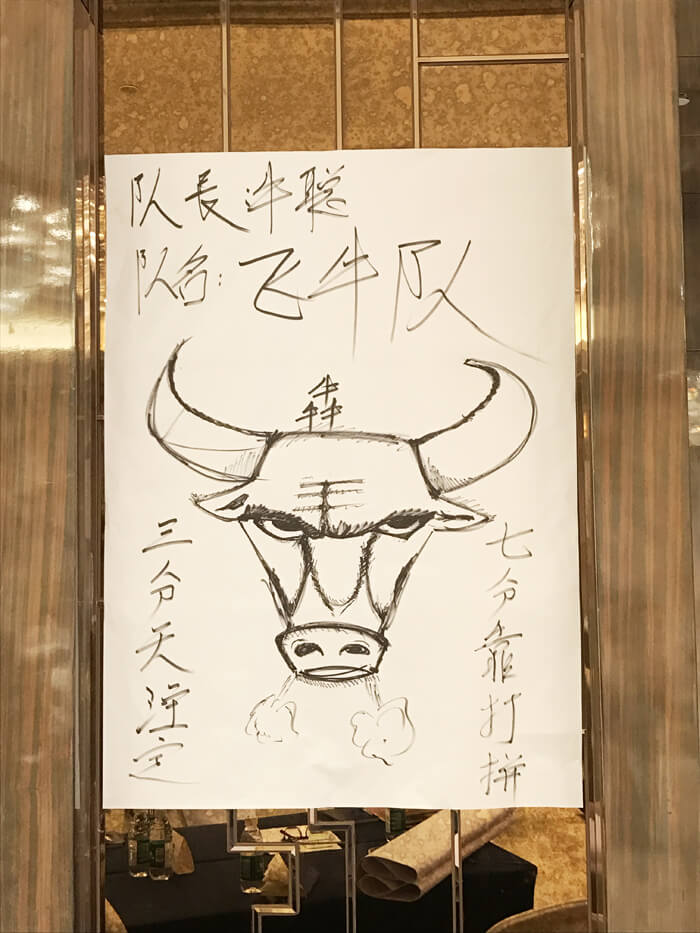 队長许聪
队名：飞牛队
犇
三分天注定
七分靠打拼